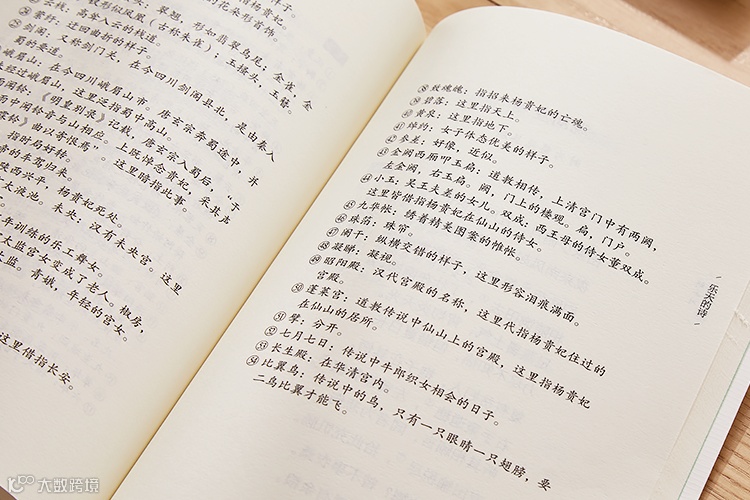 云栈：高耸入云的栈道。
萦纡：迂回曲折的样子。
剑阁：又称剑门关，在今四川剑阁县北，是由秦入
蜀的要道。
峨眉山：在今四川峨眉山市。唐玄宗奔蜀途中，并
未经过峨眉山，这里泛指蜀中高山。
《明皇别录》记载，唐玄宗入蜀后，“于
雨中闻铃音与山相应。上既悼念贵妃，采其声
霖铃》曲以寄恨焉”。这里暗指此事。
指时局好转。
帝的车驾归来。
陕西兴平，杨贵妃死处。
太液池。未央：汉有未央宫。这里
年训练的乐工舞女。
太监宫女变成了老人。椒房，
太监。青娥，年轻的宫女。
这里借指长安。
㊳致魂魄：指招来杨贵妃的亡魂。
㊴碧落：这里指天上。
㊵黄泉：这里指地下。
㊶绰约：女子体态优美的样子。
㊷参差：好像，近似。
㊸金阙西厢叩玉扃：道教相传，上清宫门中有两阙，
左金阙，右玉扃。阙，门上的楼观。扃，门户。
㊹小玉：吴王夫差的女儿。双成：西王母的侍女董双成。
这里皆借指杨贵妃在仙山的侍女。
㊺九华帐：绣着精美图案的帷帐。
㊻珠箔：珠帘。
㊼阑干：纵横交错的样子，这里形容泪痕满面。
㊽凝睇：凝视。
㊾昭阳殿：汉代宫殿的名称，这里代指杨贵妃住过的
宫殿。
㊿蓬莱宫：道教传说中仙山上的宫殿，这里指杨贵妃
在仙山的居所。
51擘：分开。
52七月七日：传说中牛郎织女相会的日子。
53长生殿：在华清宫内。
54比翼鸟：传说中的鸟，只有一只眼睛一只翅膀，要
二鸟比翼才能飞。
乐天的诗
大数跨境